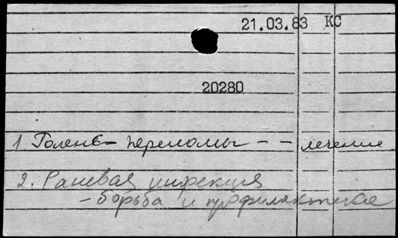 21.03.83 КС
20280
1 Голень - переломы - - лечение
2. Раневая инфекция
- борьба и профилактика